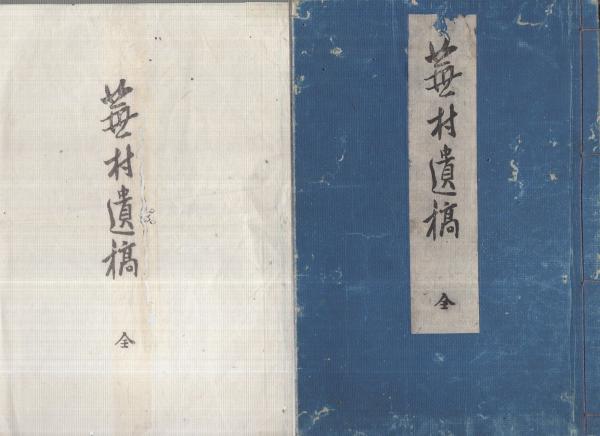 蕪村遺稿
全
蕪村遺稿
全